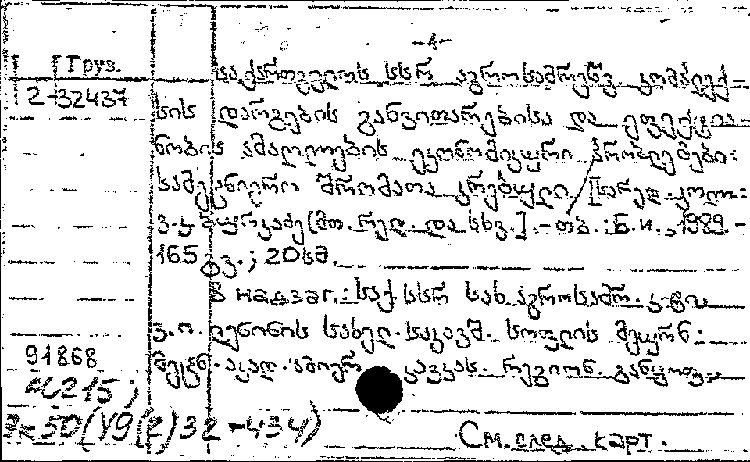 -1-
Груз.
საქართველოს სსრ აგროსამრეწვ. კომპლექ-
2-32437
სის დარგების განვითარებისა და ეფექტია-
ნობის ამაღლების ეკონომიკური პრობლემები:
სამეცნიერო შრომათა კრებული [სარედ. კოლ.:
(მთ. რედ. და სხვ.]. - თბ. : Б.и., 1989 -
165 გვ. ; 20 სმ.
В надзаг.: საქ. სსრ სახ. აგროსამრ. კ-ტი.
ვ.ი. ლენინის სახელ. საკავშ. სოფლის მეურნ.
91868
მეცნ. აკად. ამიერ კავკას. რეგიონ. განყოფ.,
N215;
50(49(2)32-434)
См. след. карт.